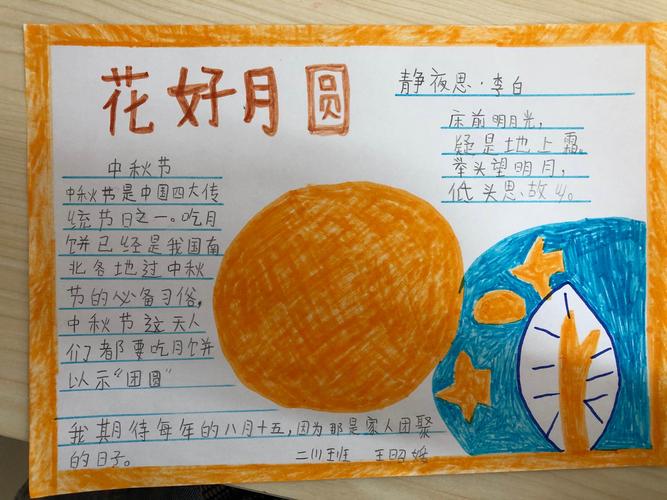 花好月圆
静夜思·李白
床前明月光，
疑是地上霜。
举头望明月，
低头思故乡。
中秋节
中秋节是中国四大传
统节日之一。吃月
饼已经是我国南
北各地过中秋
节的必备习俗，
中秋节这天人
们都要吃月饼
以示“团圆”
我期待每年的八月十五，因为那是家人团聚
的日子。 二(1)班 王昭